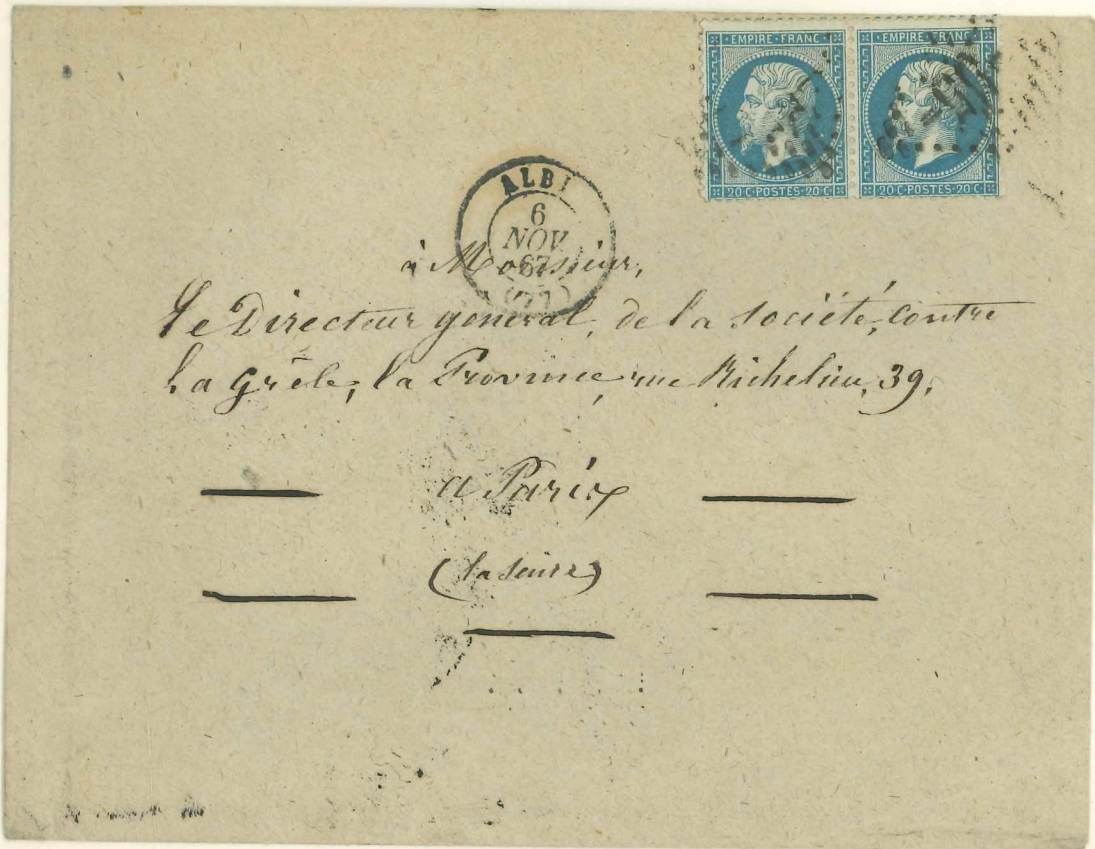 EMPIRE · FRANC · EMPIRE · FRANC ·
20 C · POSTES · 20 C 20 C · POSTES · 20 C
ALBI
6
NOV.
67
(77)
à Monsieur,
le Directeur général, de la société, contre
la grêle, la Province, rue Richelieu, 39,
a Paris
(la Seine)